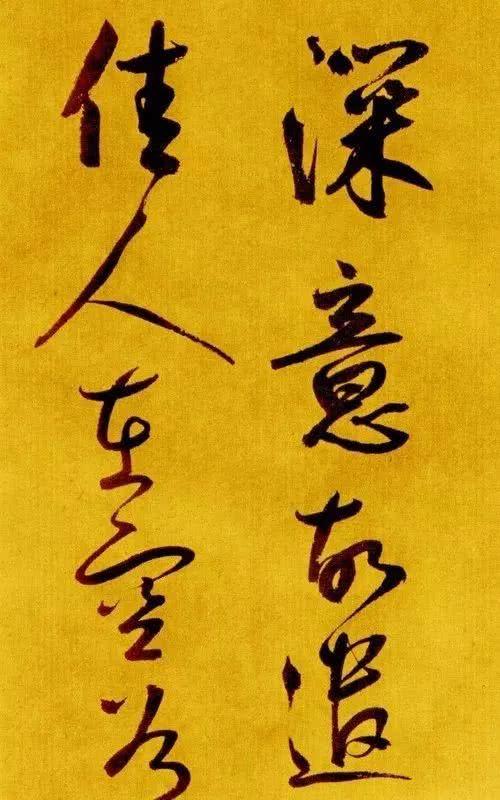 深意故遣
佳人在空谷